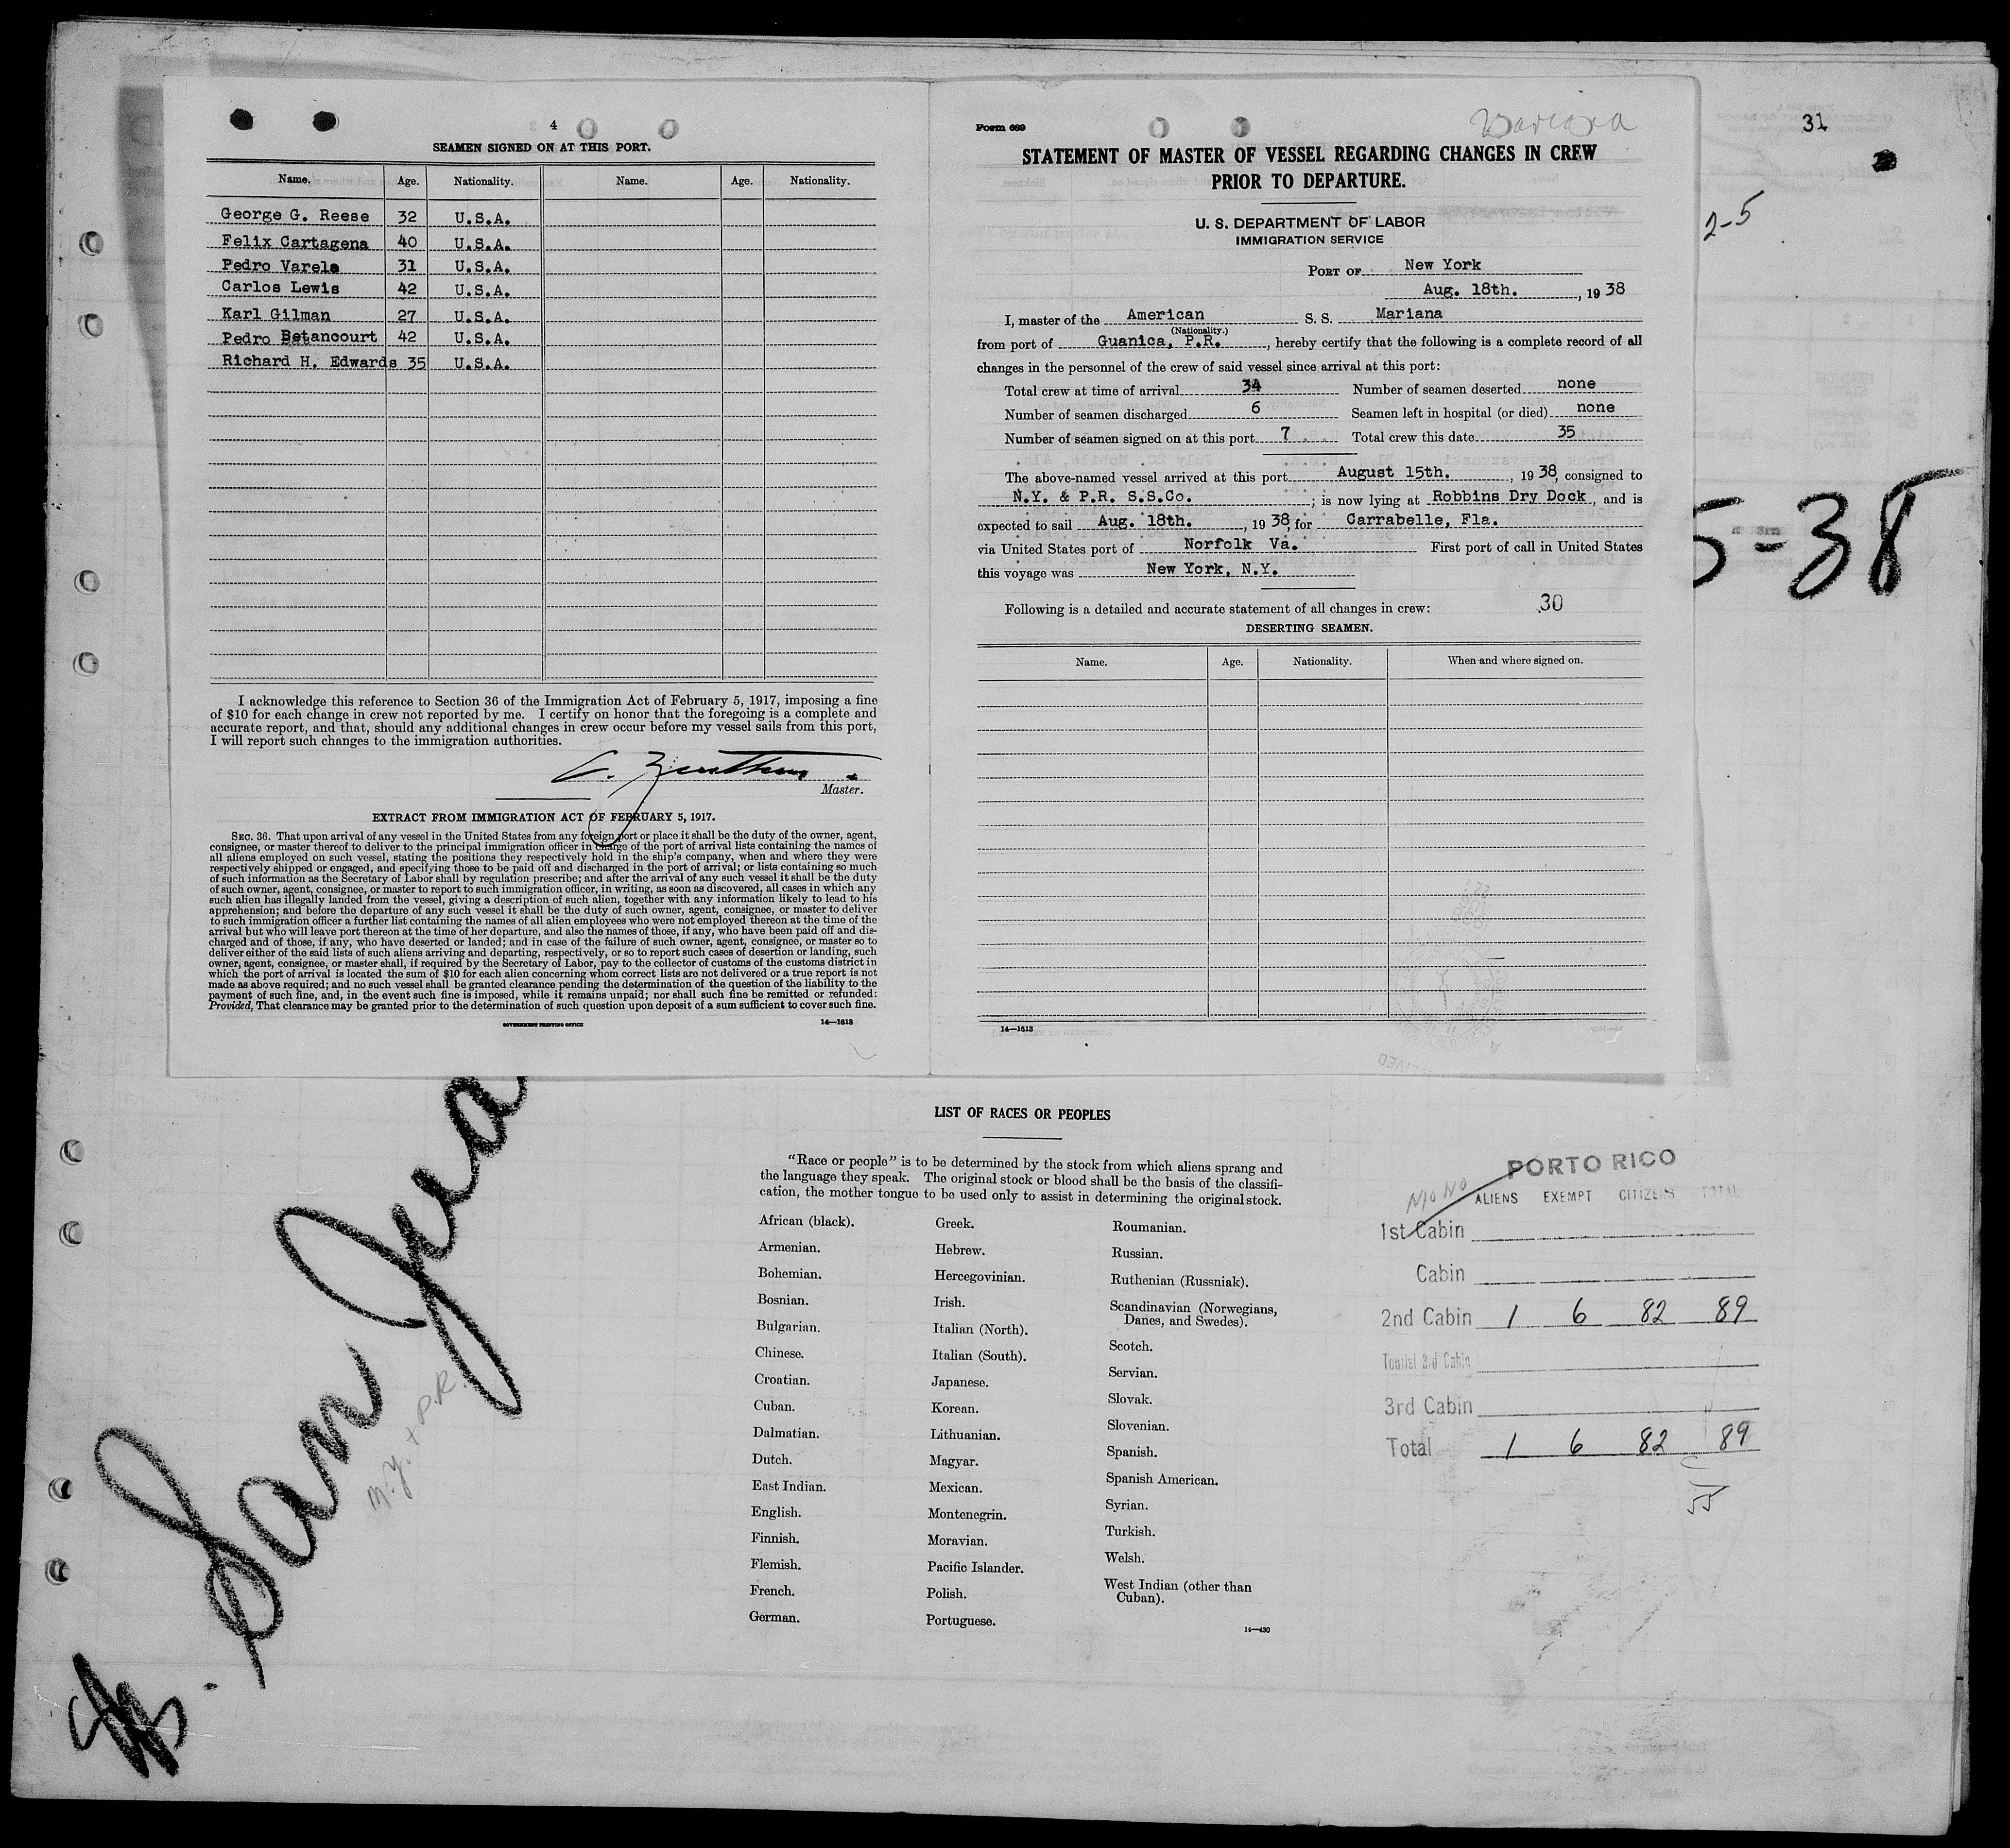 4
SEAMEN SIGNED ON AT THIS PORT.
Name. Age. Nationality. Name. Age. Nationality.
George G. Reese 32 U.S.A.
Felix Cartagena 40 U.S.A.
Pedro Varela 31 U.S.A.
Carlos Lewis 42 U.S.A.
Karl Gilman 27 U.S.A.
Pedro Betancourt 42 U.S.A.
Richard H. Edwards 35 U.S.A.
I acknowledge this reference to Section 36 of the Immigration Act of February 5, 1917, imposing a fine
of $10 for each change in crew not reported by me. I certify on honor that the foregoing is a complete and
accurate report, and that, should any additional changes in crew occur before my vessel sails from this port,
I will report such changes to the immigration authorities.
Master.
EXTRACT FROM IMMIGRATION ACT OF FEBRUARY 5, 1917.
SEC. 36. That upon arrival of any vessel in the United States from any foreign port or place it shall be the duty of the owner, agent,
consignee, or master thereof to deliver to the principal immigration officer in charge of the port of arrival lists containing the names of
all aliens employed on such vessel, stating the positions they respectively hold in the ship's company, when and where they were
respectively shipped or engaged, and specifying those to be paid off and discharged in the port of arrival; or lists containing so much
of such information as the Secretary of Labor shall by regulation prescribe; and after the arrival of any such vessel it shall be the duty
of such owner, agent, consignee, or master to report to such immigration officer, in writing, as soon as discovered, all cases in which any
such alien has illegally landed from the vessel, giving a description of such alien, together with any information likely to lead to his
apprehension; and before the departure of any such vessel it shall be the duty of such owner, agent, consignee, or master to deliver
to such immigration officer a further list containing the names of all alien employees who were not employed thereon at the time of the
arrival but who will leave port thereon at the time of her departure, and also the names of those, if any, who have been paid off and dis-
charged and of those, if any, who have deserted or landed; and in case of the failure of such owner, agent, consignee, or master so to
deliver either of the said lists of such aliens arriving and departing, respectively, or so to report such cases of desertion or landing, such
owner, agent, consignee, or master shall, if required by the Secretary of Labor, pay to the collector of customs of the customs district in
which the port of arrival is located the sum of $10 for each alien concerning whom correct lists are not delivered or a true report is not
made as above required; and no such vessel shall be granted clearance pending the determination of the question of the liability to the
payment of such fine, and, in the event such fine is imposed, while it remains unpaid; nor shall such fine be remitted or refunded:
Provided, That clearance may be granted prior to the determination of such question upon deposit of a sum sufficient to cover such fine.
GOVERNMENT PRINTING OFFICE 14—1613
Form 689
Mariana
STATEMENT OF MASTER OF VESSEL REGARDING CHANGES IN CREW
PRIOR TO DEPARTURE.
U. S. DEPARTMENT OF LABOR
IMMIGRATION SERVICE
PORT OF New York
Aug. 18th., 1938
I, master of the American S. S. Mariana
(Nationality.)
from port of Guanica, P.R., hereby certify that the following is a complete record of all
changes in the personnel of the crew of said vessel since arrival at this port:
Total crew at time of arrival 34 Number of seamen deserted none
Number of seamen discharged 6 Seamen left in hospital (or died) none
Number of seamen signed on at this port 7 Total crew this date 35
The above-named vessel arrived at this port August 15th., 1938, consigned to
N.Y. & P.R. S.S.Co.; is now lying at Robbins Dry Dock, and is
expected to sail Aug. 18th., 1938, for Carrabelle, Fla.
via United States port of Norfolk Va. First port of call in United States
this voyage was New York, N.Y.
Following is a detailed and accurate statement of all changes in crew: 30
DESERTING SEAMEN.
Name. Age. Nationality. When and where signed on.
14—1613
31
2-5
5-38
LIST OF RACES OR PEOPLES
"Race or people" is to be determined by the stock from which aliens sprang and
the language they speak. The original stock or blood shall be the basis of the classifi-
cation, the mother tongue to be used only to assist in determining the original stock.
African (black). Greek. Roumanian.
Armenian. Hebrew. Russian.
Bohemian. Hercegovinian. Ruthenian (Russniak).
Bosnian. Irish. Scandinavian (Norwegians,
Danes, and Swedes).
Bulgarian. Italian (North). Scotch.
Chinese. Italian (South). Servian.
Croatian. Japanese. Slovak.
Cuban. Korean. Slovenian.
Dalmatian. Lithuanian. Spanish.
Dutch. Magyar. Spanish American.
East Indian. Mexican. Syrian.
English. Montenegrin. Turkish.
Finnish. Moravian. Welsh.
Flemish. Pacific Islander. West Indian (other than
Cuban).
French. Polish.
German. Portuguese.
14—430
PORTO RICO
ALIENS EXEMPT CITIZENS TOTAL
1st Cabin
Cabin
2nd Cabin 1 6 82 89
Tourist 3rd Cabin
3rd Cabin
Total 1 6 82 89
San Jua
N.Y. + P.R.